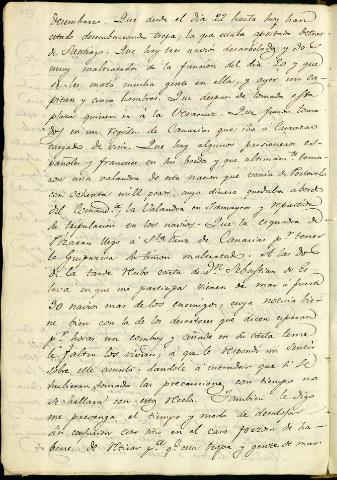 desembarco. Que desde el dia 22 hasta hoy han
estado desembarcando tropa, la que estaba apostada detras
de Santiago. Que hay tres navios desarbolados y dos
muy maltratados de la funcion del dia 20 y que
se les mató mucha gente en ella, y ayer un ca-
pitan y cinco hombres. Que despues de tomada esta
plaza quieren ir a la Veracruz. Que fueron toma
dos en un registro de Canarias que iba a
cargado de vino. Que hay algunos prisioneros es-
pañoles y franceses en su bordo y que ultimamte. toma-
ron una valandra de esta nacion que venia de Portovelo
con ochenta mill pesos, cuyo dinero quedaba a bordo
del Comandte. la Valandra en Jamayca y repartida
su tripulacion en los navios. Que la esquadra de
Pizarro llegó a Sta. Cruz de Canarias pr. tener
la Guipuzcoa su timon maltratado. A las dos
de la tarde recibo carta de Dn. Sebastian de Es
lava en que me participa vienen de mar a fuera
30 navios mas de los enemigos, cuya noticia vie-
ne bien con la de los desertores que dicen esperan
pr. horas un comboy y añade en su carta teme
le falten los viveres, a que le respondí mi sentir
sobre este asunto, dandole a entender que si se
hubieran tomado las precauciones con tiempo no
se hallara con este recelo. Tambien le digo
me prevenga el tiempo y modo de desalojar
sin confusion este sitio en el caso forzoso de ha-
berme de retirar pa. qe. esta tropa y gente de mar